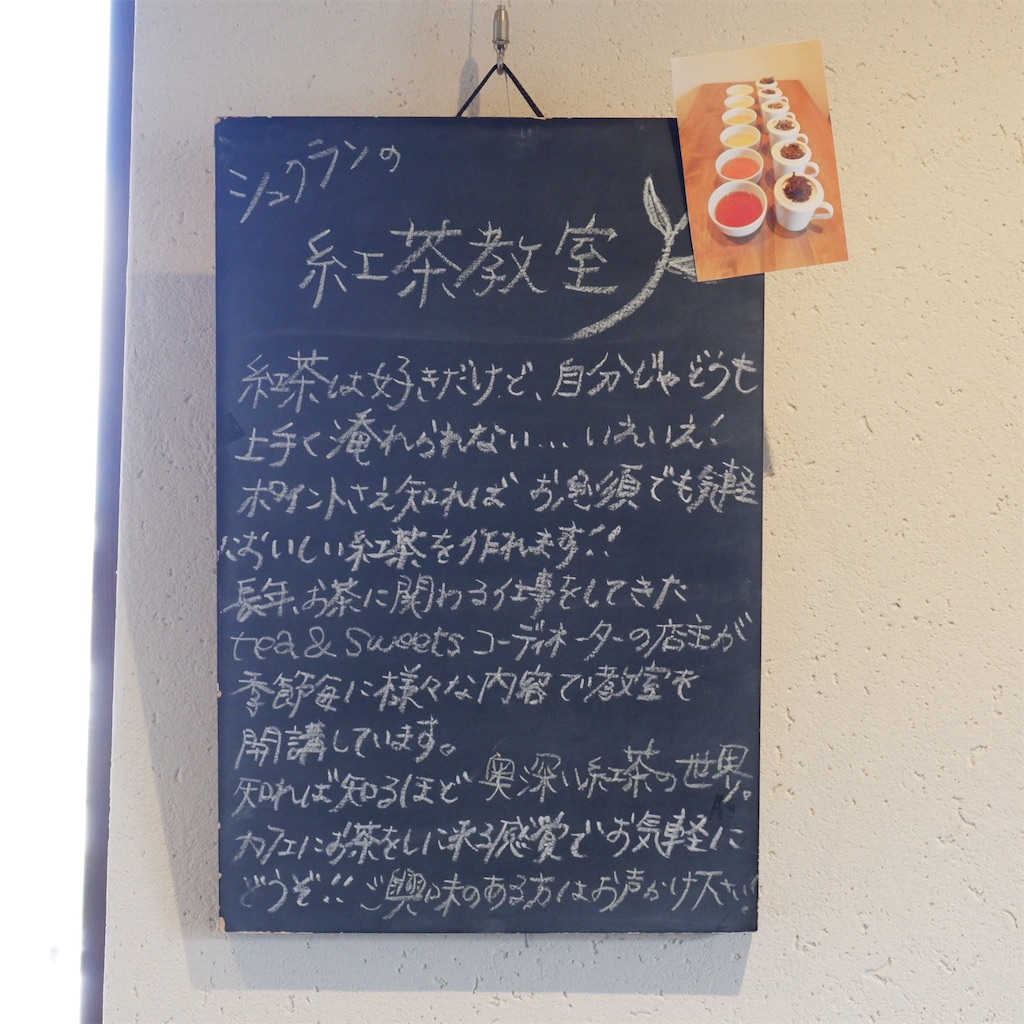 シュクランの
紅茶教室
紅茶は好きだけど、自分じゃどうも
上手く淹れられない… いえいえ!
ポイントさえ知れば お急須でも気軽
においしい紅茶を作れます!!
長年、お茶に関わる仕事をしてきた
tea & sweets コーディネーターの店主が
季節毎に様々な内容で教室を
開講しています。
知れば知るほど 奥深い紅茶の世界。
カフェにお茶をしに来る感覚でお気軽に
どうぞ!! ご興味のある方はお声かけ下さい!